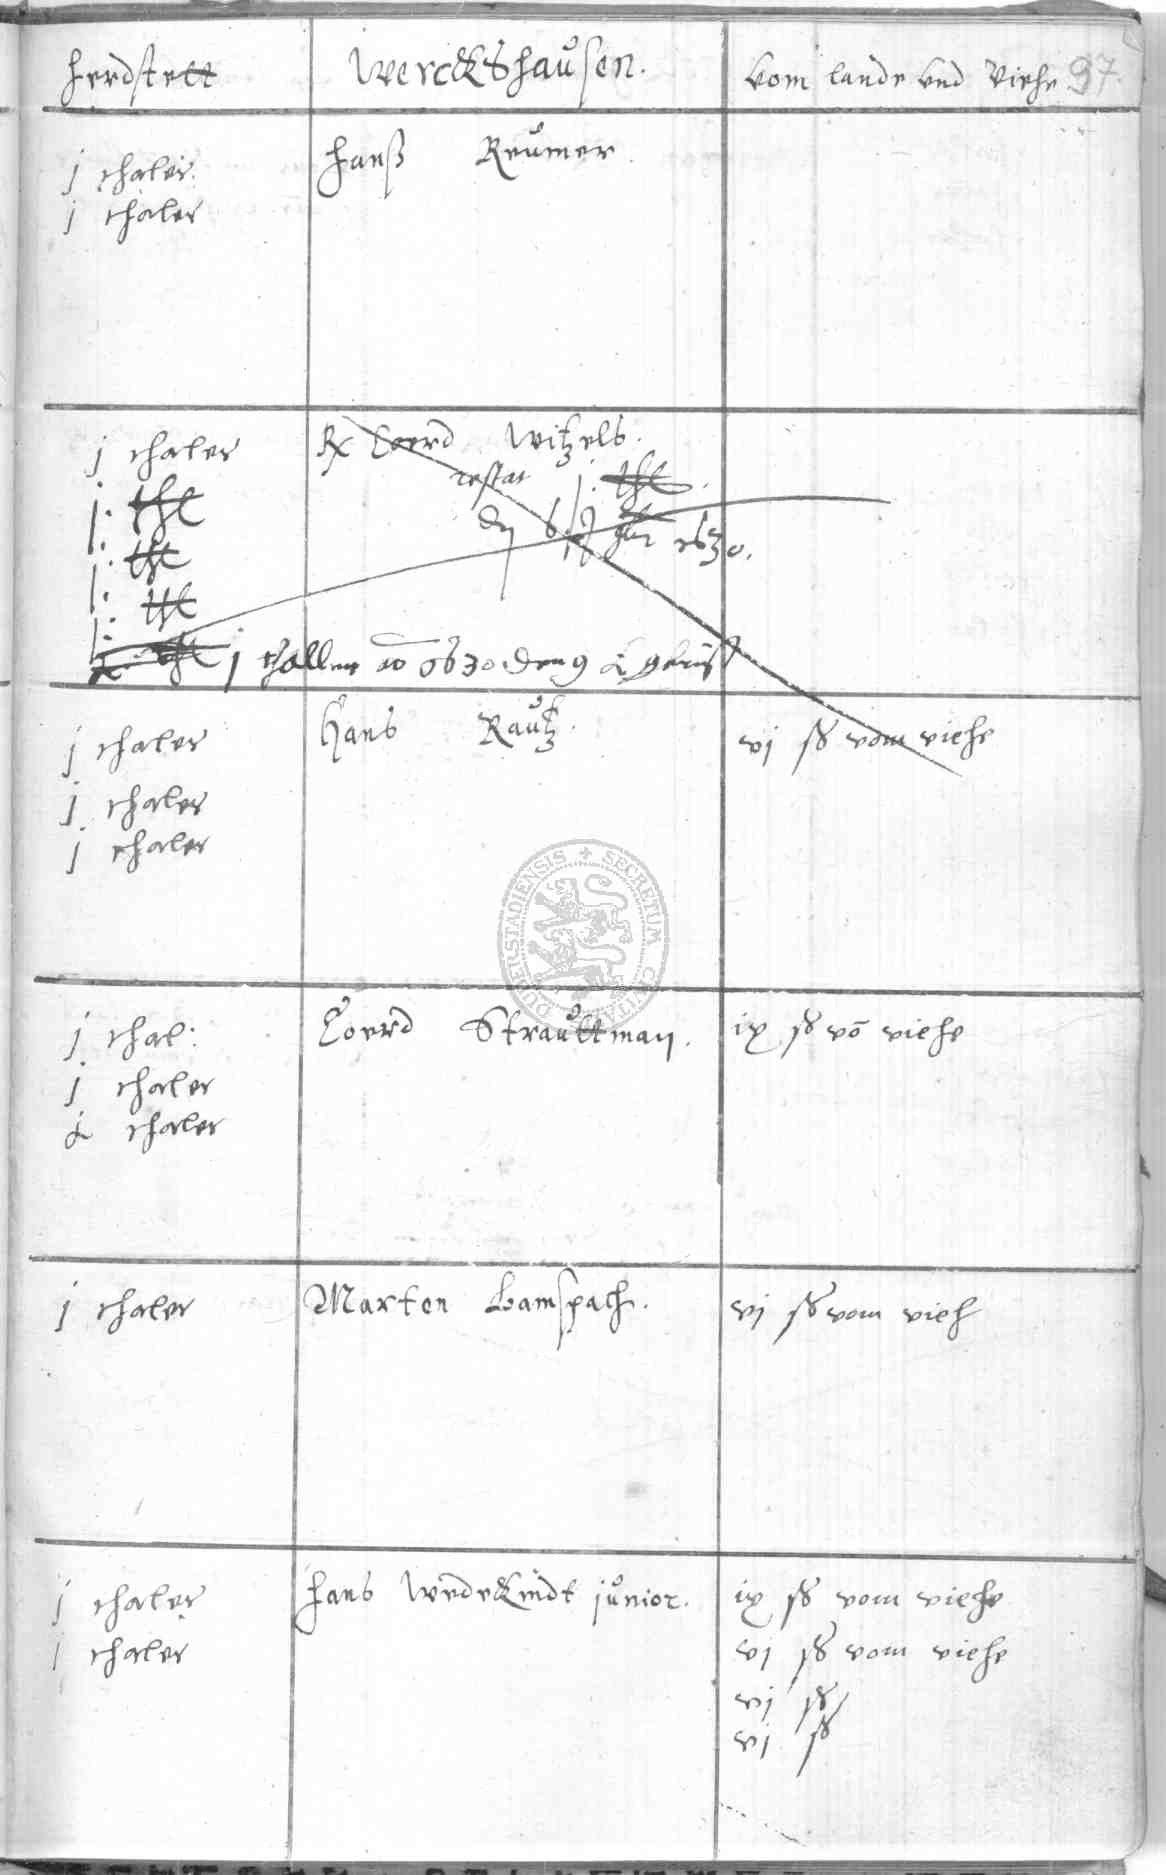 Herdstett
Werckshausen.
Vom lande und Viehe 97.
j thaler
j thaler
Hanß Reumer
j thaler
j. thl
j. thl
j. thl
Coerd Witzels.
restat j. thl.
j thaller ao 1630 den 9
j thaler
j thaler
j thaler
Hans Rautz.
vj ß vom viehe
j thal:
j thaler
thaler
Coerd Strauttman.
ix ß vo viehe
j thaler
Marten Hamspach.
vj ß vom vieh
j thaler
j thaler
Hans Wedekindt junior.
ix ß vom viehe
vj ß vom viehe
vj ß
vj ß
SECRETUM CIVITA DUDERSTADIENSIS